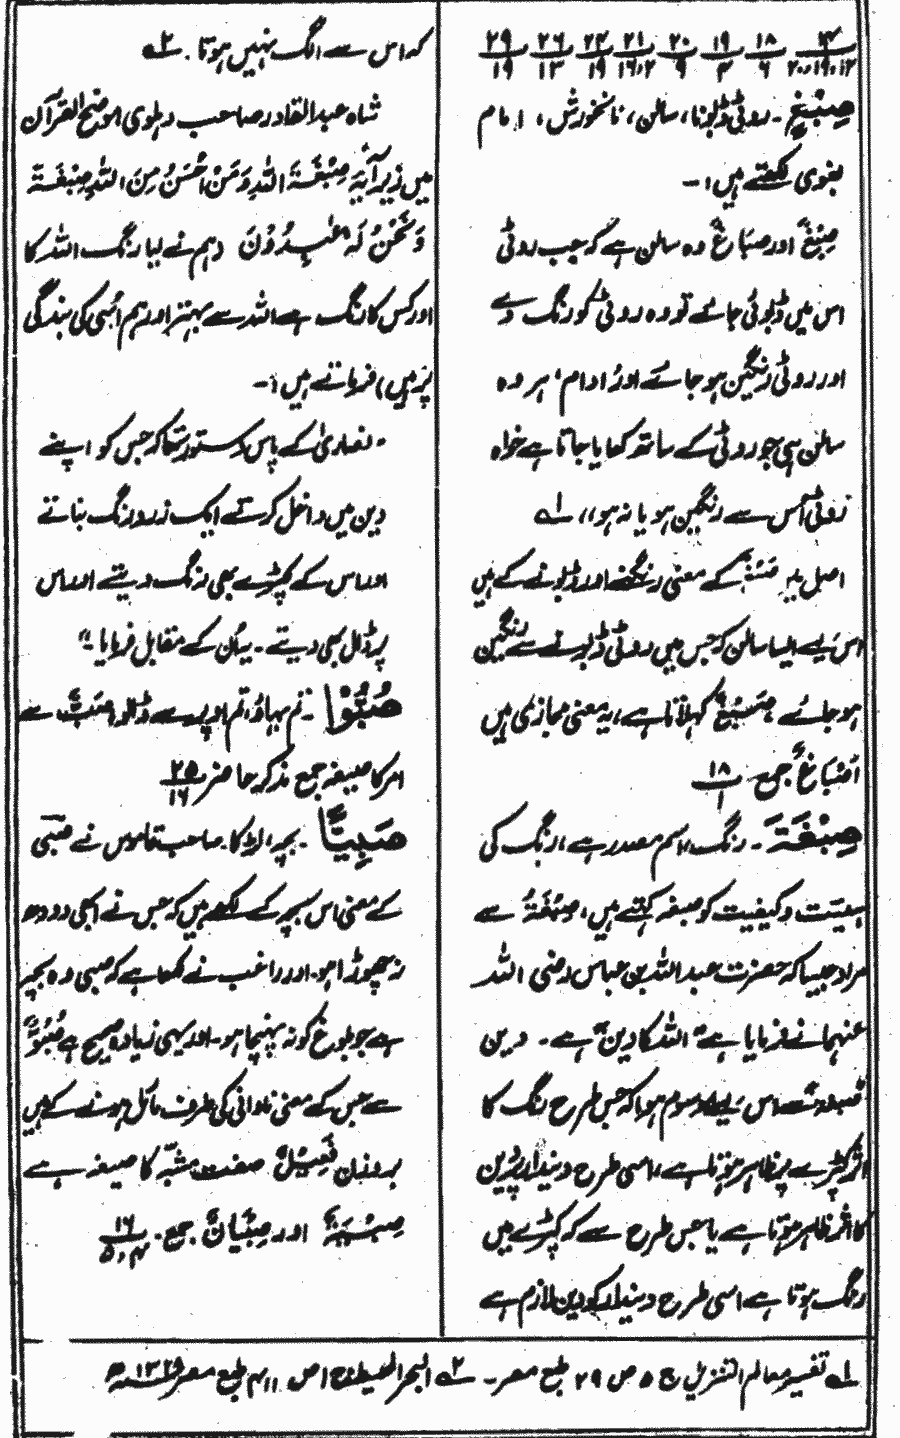 ۱۴ ۱۸ ۱۹ ۲۰ ۲۱ ۲۳ ۲۶ ۲۹
۲۰،۱۹،۱۲ ۶ ۴ ۹ ۱۶،۲ ۱۹ ۱۳ ۱۹
صِبْغٍ۔ روٹی ڈبونا، سالن، نانخورش، امام
بغوی لکھتے ہیں :۔
صِبْغٌ اور صِبَاغٌ وہ سالن ہے کہ جب روٹی
اس میں ڈبوئی جائے تو وہ روٹی کو رنگ دے
اور روٹی رنگین ہو جائے اور ادام ہر وہ
سالن ہے جو روٹی کے ساتھ کھایا جاتا ہے خواہ
روٹی اُس سے رنگین ہو یا نہ ہو،، لہ
اصل میں صَبْغٌ کے معنی رنگنے اور ڈبونے کے ہیں
اس لیے ایسا سالن کہ جس میں روٹی ڈبونے سے رنگین
ہو جائے صَبْغٌ کہلاتا ہے، یہ معنی مجازی ہیں
اَصْبَاغٌ جمع ۱۸/۱
صِبْغَةَ ۔ رنگ، اسم مصدر ہے، رنگ کی
ہیئت و کیفیت کو صبغہ کہتے ہیں، صِبْغَةُ سے
مراد جیسا کہ حضرت عبداللہ بن عباس رضی اللہ
عنہما نے فرمایا ہے "اللہ کا دین" ہے۔ دین
کو صبغہ سے اس لیے موسوم ہوا کہ جس طرح رنگ کا
اثر کپڑے پر ظاہر ہوتا ہے، اسی طرح دیندار پر دین
کا اثر ظاہر ہوتا ہے یا جس طرح سے کہ کپڑے میں
رنگ ہوتا ہے اسی طرح دیندار کو دین لازم ہے
کہ اس سے الگ نہیں ہوتا۔ ۲ہ
شاہ عبدالقادر صاحب دہلوی موضح القرآن
میں زیر آیۃ صِبْغَةَ اللّٰهِ وَمَنْ اَحْسَنُ مِنَ اللّٰهِ صِبْغَةً
وَّنَحْنُ لَهٗ عٰبِدُوْنَ (ہم نے لیا رنگ اللہ کا
اور کس کا رنگ ہے اللہ سے بہتر اور ہم اُسی کی بندگی
پر ہیں) فرماتے ہیں :۔
"نصاریٰ کے پاس دستور تھا کہ جس کو اپنے
دین میں داخل کرتے ایک زرد رنگ بناتے
اور اس کے کپڑے بھی رنگ دیتے اور اس
پر ڈال بھی دیتے۔ یہ اُن کے مقابل فرمایا"۔
صُبُّوْا ۔ تم بہاؤ، تم اوپر سے ڈالو، صَبٌّ سے
امر کا صیغہ جمع مذکر حاضر ۲۵/۱۶
صَبِيًّا ۔ بچہ، لڑکا۔ صاحب قاموس نے صبّی
کے معنی اس بچہ کے لکھے ہیں کہ جس نے ابھی دودھ
نہ چھوڑا ہو۔ اور راغب نے لکھا ہے کہ صبی وہ بچہ
ہے جو بلوغ کو نہ پہنچا ہو۔ اور یہی زیادہ صحیح ہے صُبُوٌّ
سے جس کے معنی نادانی کی طرف مائل ہونے کے ہیں
بروزن فَعِيْلٌ صفت مشبہ کا صیغہ ہے
صِبْيَةٌ اور صِبْيَانٌ جمع۔ ۱۶/۴،۵
لہ تفسیر معالم التنزیل ج ۵ ص ۲۹ طبع مصر۔ ۲ہ البحر المحیط ج ا ص ۴۱۱ طبع مصر ۱۳۲۸ھ